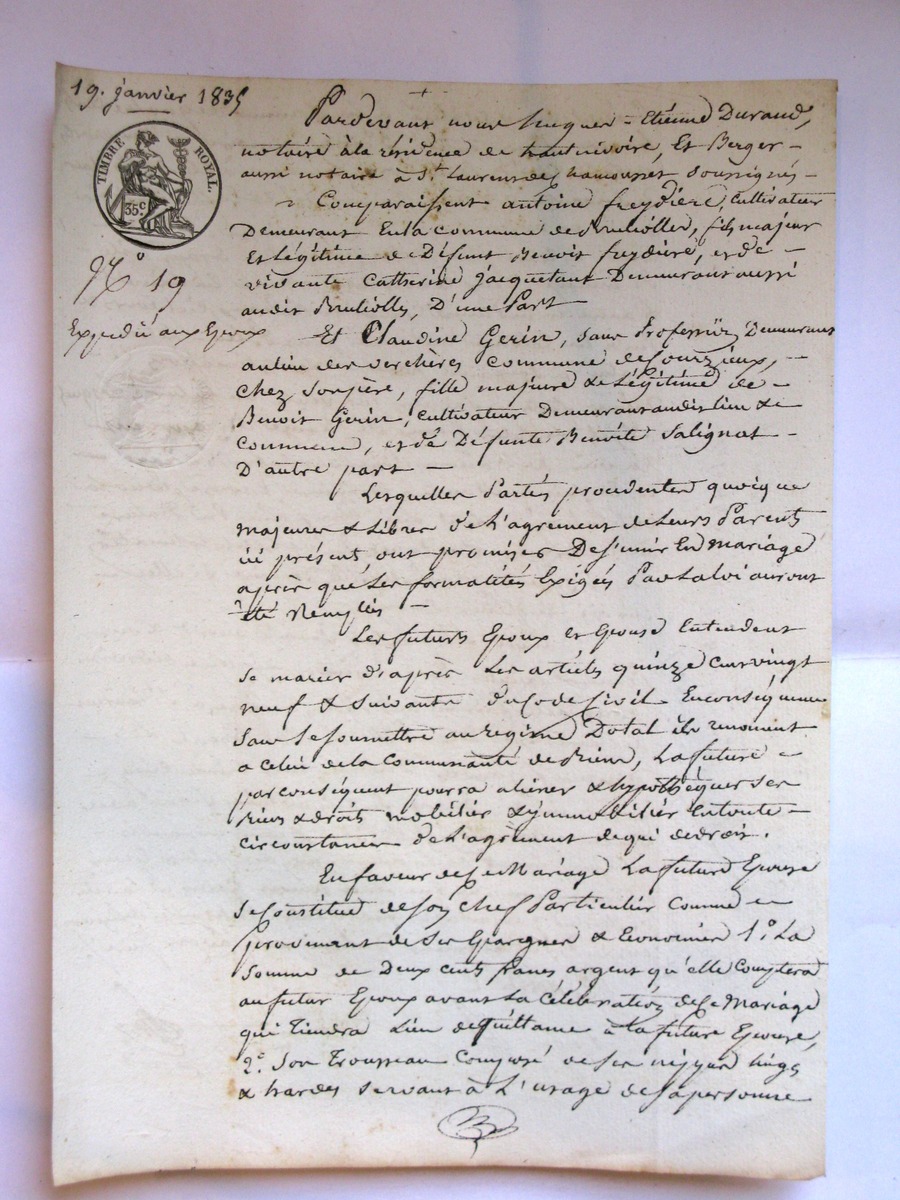 19. janvier 1835
TIMBRE ROYAL.
35 c
N° 19
Expedié aux Epoux
Pardevant nous Jacques-Etiénne Durand,
notaire à la résidence de hauterivoire, Et Berger
aussi notaire à St. Laurent de Chamousset soussignés
Comparaissent antoine freydiére, Cultivateur
Demeurant En la commune de Brulíolles, fils majeur
et Légitime de Défunt Benoit freydiére, et de
vivante Catherine Jacquetant Demeurant aussi
audit Brulíolles, D'une Part
Et Claudine Gerin, sans Profession, Demeurant
au lieu des verchères commune de Sourzieux,
chez son père, fille majeure & Légitime de
Benoit Gerin, cultivateur Demeurant audit lieu &
Commune, et de Défunte Benoite Salignat
D'autre part
Lesquelles Parties procedentes quoique
majeures & Libres de L'agrement de Leurs Parents
ici présent, ont promises De s'unir En mariage
après que Les formalités Exigés Par La Loi auront
été Remplies
Les futurs Epoux et Epouse Entendent
se marier d'après Les articles quinze cent vingt
neuf & suivants du Code Civil En conséquence
sans se soumettre au regime Dotal ils renoncent
a Celui de la Communauté de Biens, La future
par conséquent pourra aliéner & hypothéquer ses
Biens & droits mobiliers & ymmobiliers En toute
circonstances de L'agrèment de qui de droit.
En faveur de Ce Mariage La future Epouse
se Constitue de son chef Particulier Comme
provenant de ses Epargnes & Economies 1°. La
somme de Deux cents francs argent qu'elle Comptera
au futur Epoux avant La Célébration de Ce Mariage
qui Tiendra Lieu de Quittance à la future Epouse,
2°. Son Trousseau Composé de ses nippes linges
& hardes servant à L'usage de sa personne